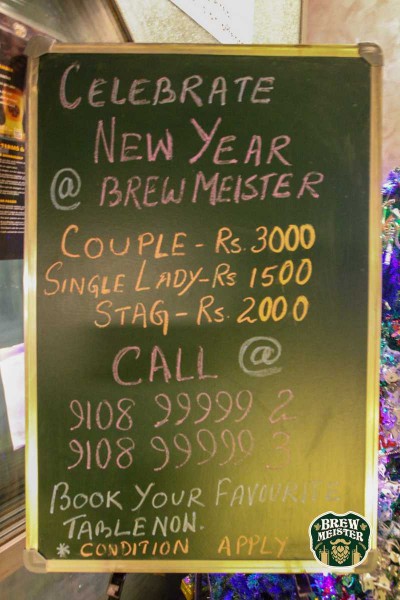 CELEBRATE
NEW YEAR
@ BREW MEISTER
COUPLE - Rs. 3000
SINGLE LADY - Rs 1500
STAG - Rs. 2000
CALL @
9108 99999 2
9108 99999 3
BOOK YOUR FAVOURITE
TABLE NOW.
* CONDITION APPLY
BREW
MEISTER